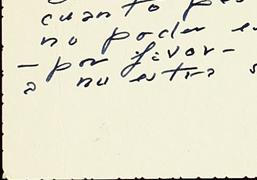 cuanto
no poder
- por favor -
a nuestra s